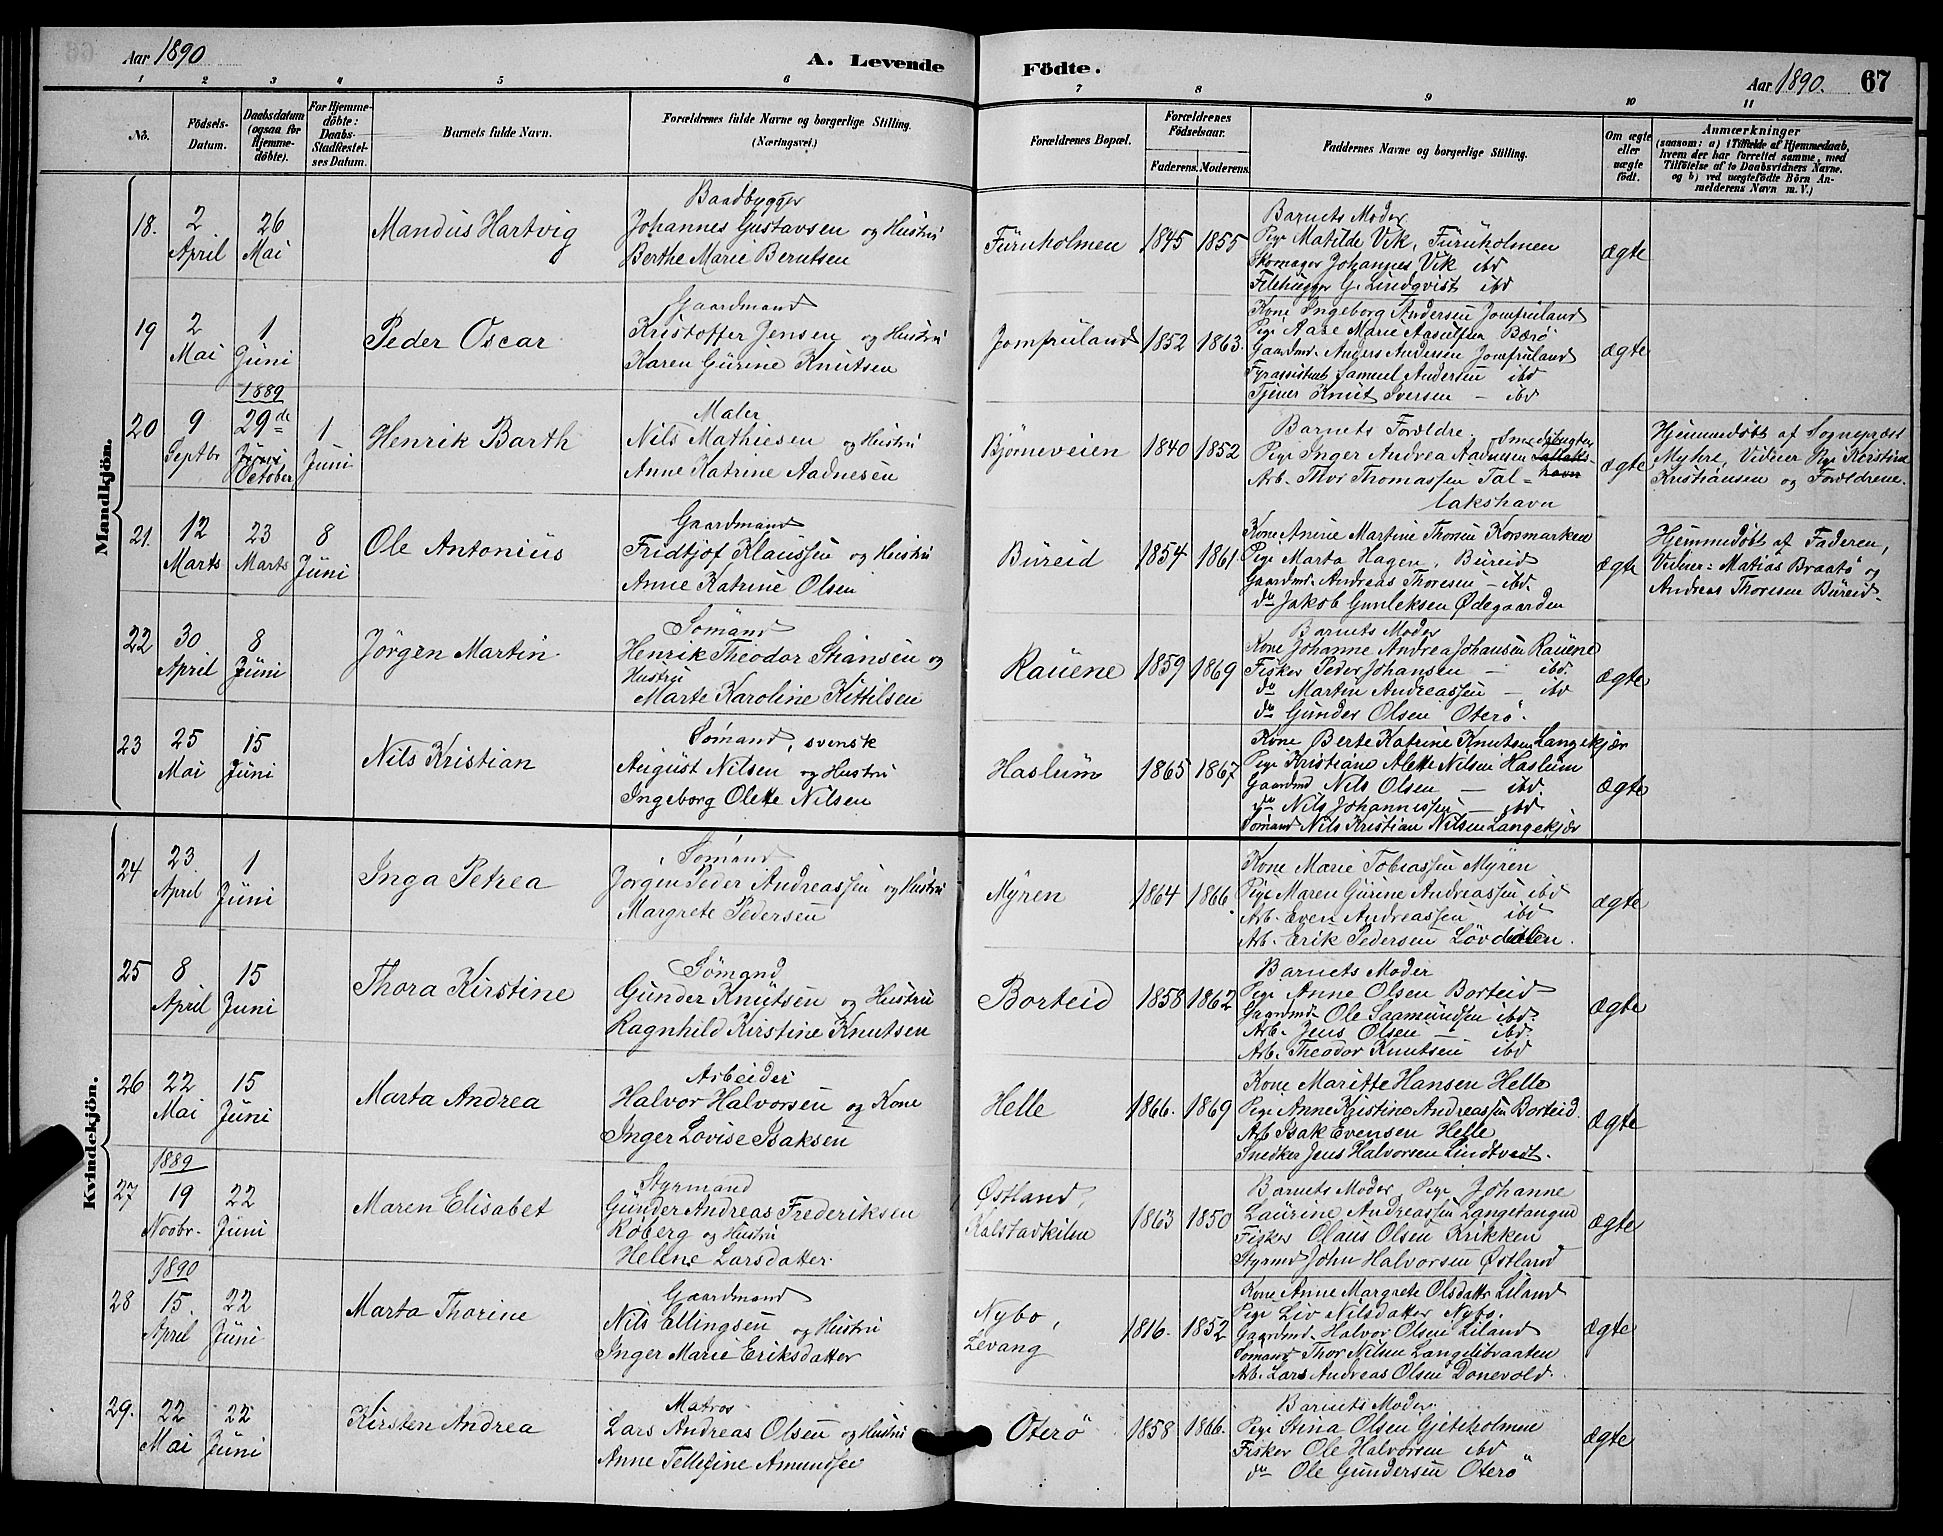 Aar 1890
A. Levende Födte.
Aar 1890. 67
1 2 3 4 5 6 7 8 9 10 11
No.
Födsels-Datum.
Daabsdatum (ogsaa for Hjemmedöbte).
For Hjemmedöbte: Daabs-Stadfestelses Datum.
Barnets fulde Navn.
Forældrenes fulde Navne og borgerlige Stilling.
(Næringsvei.)
Forældrenes Bopæl.
Forældrenes Födselsaar.
Faderens. Moderens.
Faddernes Navne og borgerlige Stilling.
Om ægte eller uægte födt.
Anmærkninger
(saasom: a) i Tilfælde af Hjemmedaab, hvem der har forrettet samme, med Tilföielse af to Daabsvidners Navne. og b) ved uægtefödte Börn Anmelderens Navn m. V.)
Mandkjön.
18. 2 April 26 Mai Mandus Hartvig
Baadbygger
Johannes Gustavsen og Hustru
Berthe Marie Berntsen
Furuholmen 1845 1855
Barnets Moder
Pige Matilde Vik, Furuholmen
Skomager Johannes Vik ibd
Filehugger G. Lindqvist ibd
ægte
19 2 Mai 1 Juni Peder Oscar
Gaardmand
Kristoffer Jensen og Hustru
Karen Gurine Knutsen
Jomfruland 1852 1863.
Kone Ingeborg Andersen Jomfruland
Pige Aase Marie Aasulfsen Bærö
Gaardmd. Anders Andersen Jomfruland
Fyrassistent Samuel Andersen ibd
Tjener Knut Iversen - ibd
ægte
20 9 Septbr 1889 29de October 1 Juni Henrik Barth
Maler
Nils Mathiesen og Hustru
Anne Katrine Aadnesen
Bjørneveien 1840 1852
Barnets Forældre.
Pige Inger Andrea Aadnesen Smedsbugten
Arb. Thor Thomassen Tal-
lakshavn
ægte
Hjemmedøbt af Sogneprest
Myhre, Vidner Pige Kirstine
Kristiansen og Forældrene.
21. 12 Marts 23 Marts 8 Juni Ole Antonius
Gaardmand
Fridtjof Klaussen og Hustru
Anne Katrine Olsen
Büreid 1854 1861.
Kone Anne Martine Thorsen Korsmarken
Pige Marta Hagen, Büreid
Gaardmd. Andreas Thoresen - ibd.
do Jakob Gunleksen Ødegaarden
ægte
Hjemmedöbt af Faderen,
Vidner: Matias Braatö og
Andreas Thoresen Büreid.
22 30 April 8 Juni Jörgen Martin
Sömand
Henrik Theodor Stiansen og
Hustru
Marte Karoline Kittilsen
Rauene 1859 1869
Barnets Moder
Kone Johanne Andrea Johansen Rauene
Fisker Peder Johansen - ibd.
do Martin Andreassen - ibd
do Gunder Olsen Oterö.
ægte
23 25 Mai 15 Juni Nils Kristian
Sømand, svensk
August Nilsen og Hustru
Ingeborg Olette Nilsen
Haslum 1865 1867
Kone Berte Katrine Knutsen Langekjær
Pige Kristiane Alette Nilsen Haslum
Gaardmd Nils Olsen - ibd.
do Nils Johannessen - ibd.
Sømand Nils Kristian Nilsen Langekjær
ægte
Kvindekjön.
24 23 April 1 Juni Inga Petrea
Sömand
Jörgen Peder Andreassen og Hustru
Margrete Pedersen
Myren 1864 1866
Kone Marie Tobiassen Myren
Pige Maren Gurine Andreassen ibd
Arb. Even Andreassen ibd
Arb. Erik Pedersen Lövdalen.
ægte
25 8 April 15 Juni Thora Kirstine
Sömand
Gunder Knutsen og Hustru
Ragnhild Kirstine Knutsen
Borteid 1858 1862
Barnets Moder
Pige Anne Olsen Borteid
Gaardmd. Ole Saamundsen ibd.
Arb. Jens Olsen - ibd.
Arb. Theodor Knutsen ibd
ægte
26 22 Mai 15 Juni Marta Andrea
Arbeider
Halvor Halvorsen og Kone
Inger Lovise Isaksen
Helle 1866. 1869
Kone Maritte Hansen Helle
Pige Anne Kristine Andreassen Borteid.
Arb. Isak Evensen Helle
Snedker Jens Halvorsen Lindtvedt.
ægte
27 1889 19 Novbr. 22 Juni Maren Elisabet
Styrmand
Gunder Andreas Frederiksen
Roberg og Hustru
Helene Larsdatter.
Østland,
Kalstadkilen 1863 1850
Barnets Moder, Pige Johanne
Laurine Andreassen Langetangen
Fisker Olaus Olsen Krikken
Styrmd John Halvorsen Østland
ægte
28 1890 15. April 22 Juni Marta Thorine
Gaardmand
Nils Ellingsen og Hustru
Inger Marie Eriksdatter
Nybo,
Levang 1816. 1852
Kone Anne Margrete Olsdattr Liland
Pige Liv Nilsdatter Nybo.
Gaardmd. Halvor Olsen Liland
Sømand Thor Nilsen Langelibraaten
Arb. Lars Andreas Olsen Donevold.
ægte
29. 22 Mai 22 Juni Kirsten Andrea
Matros
Lars Andreas Olsen og Hustru
Anne Tellefine Amundsen
Oterö 1858 1866.
Barnets Moder
Pige Stina Olsen Gjeteholmen
Fisker Ole Halvorsen ibd
do Ole Gundersen Oterö
ægte